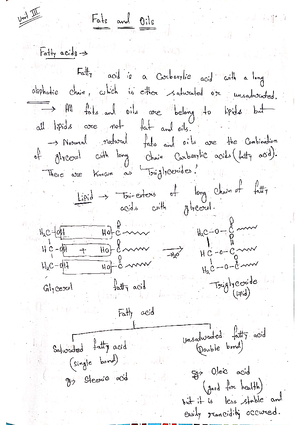 Unit III
Fats and Oils
Fatty acids →
Fatty acid is a Carboxylic acid with a long
aliphatic chain, which is either saturated or unsaturated.
→ All fats and oils are belong to lipids but
all lipids are not fat and oils.
→ Normal natural fats and oils are the Combination
of glycerol with long chain Carboxylic acids (fatty acid).
There are known as Triglycerides.
Lipid → Tri-esters of long chain of fatty
acids with glycerol.
H₂C-OH HO-C
HC-OH + HO-C
H₂C-OH HO-C
-H₂O
H₂C-O-C
HC-O-C
H₂C-O-C
Glycerol fatty acid Triglyceride
(lipid)
Fatty acid
Saturated fatty acid
(single bond)
eg→ Stearic acid
unsaturated fatty acid
(Double bond)
eg→ Oleic acid
(good for health)
but it is less stable and
easily rancidity occurred.